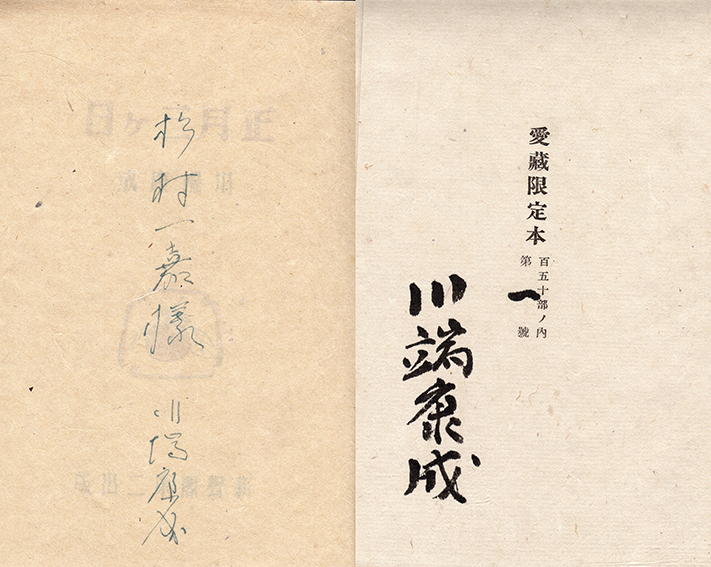 愛藏限定本
百五十部ノ內
第一號
川端康成
杉村一嘉様
川端康成